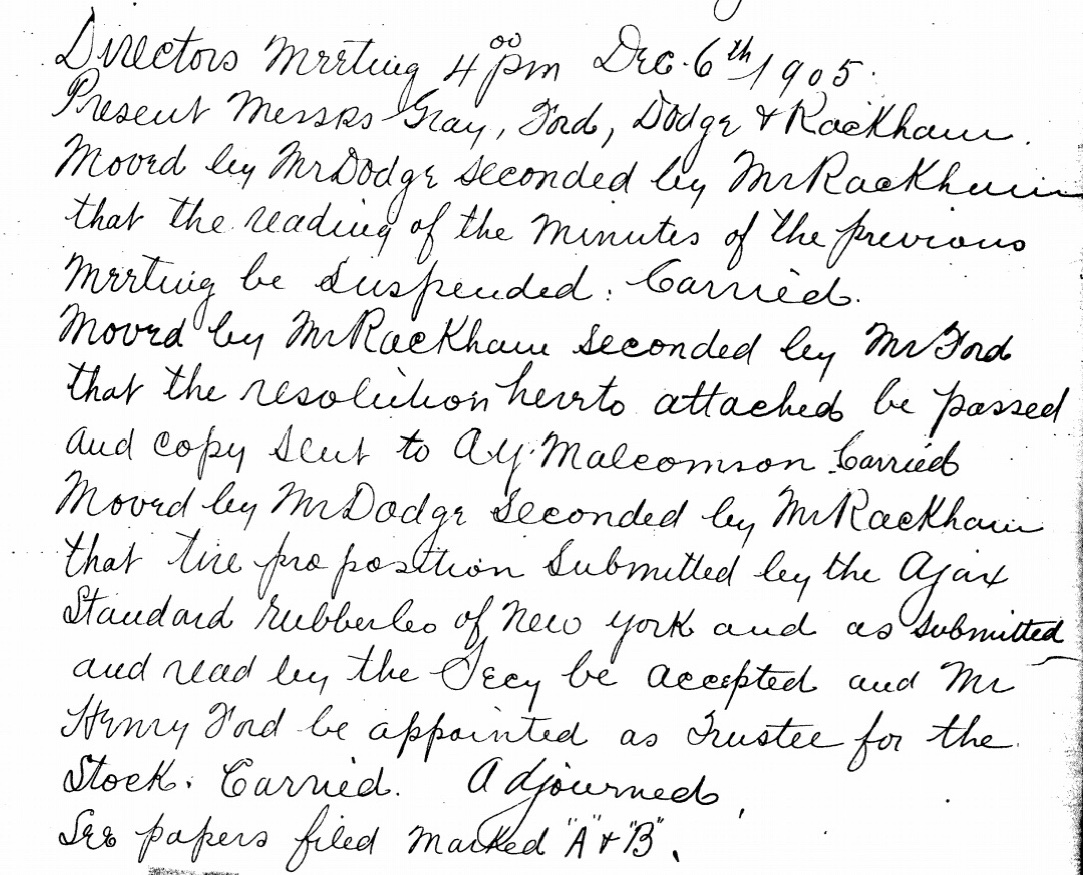 Directors Meeting 4 00 pm Dec. 6th/1905.
Present Messrs Gray, Ford, Dodge & Rackham.
Moved by Mr Dodge seconded by Mr Rackham
that the reading of the minutes of the previous
Meeting be suspended. Carried.
Moved by Mr Rackham seconded by Mr Ford
that the resolution hereto attached be passed
and copy sent to A.Y. Malcomson Carried
Moved by Mr Dodge seconded by Mr Rackham
that tire proposition submitted by the Ajax
Standard Rubber Co of New York and as submitted
and read by the Secy be accepted and Mr
Henry Ford be appointed as Trustee for the
Stock. Carried. Adjourned,
See papers filed marked "A" & "B".